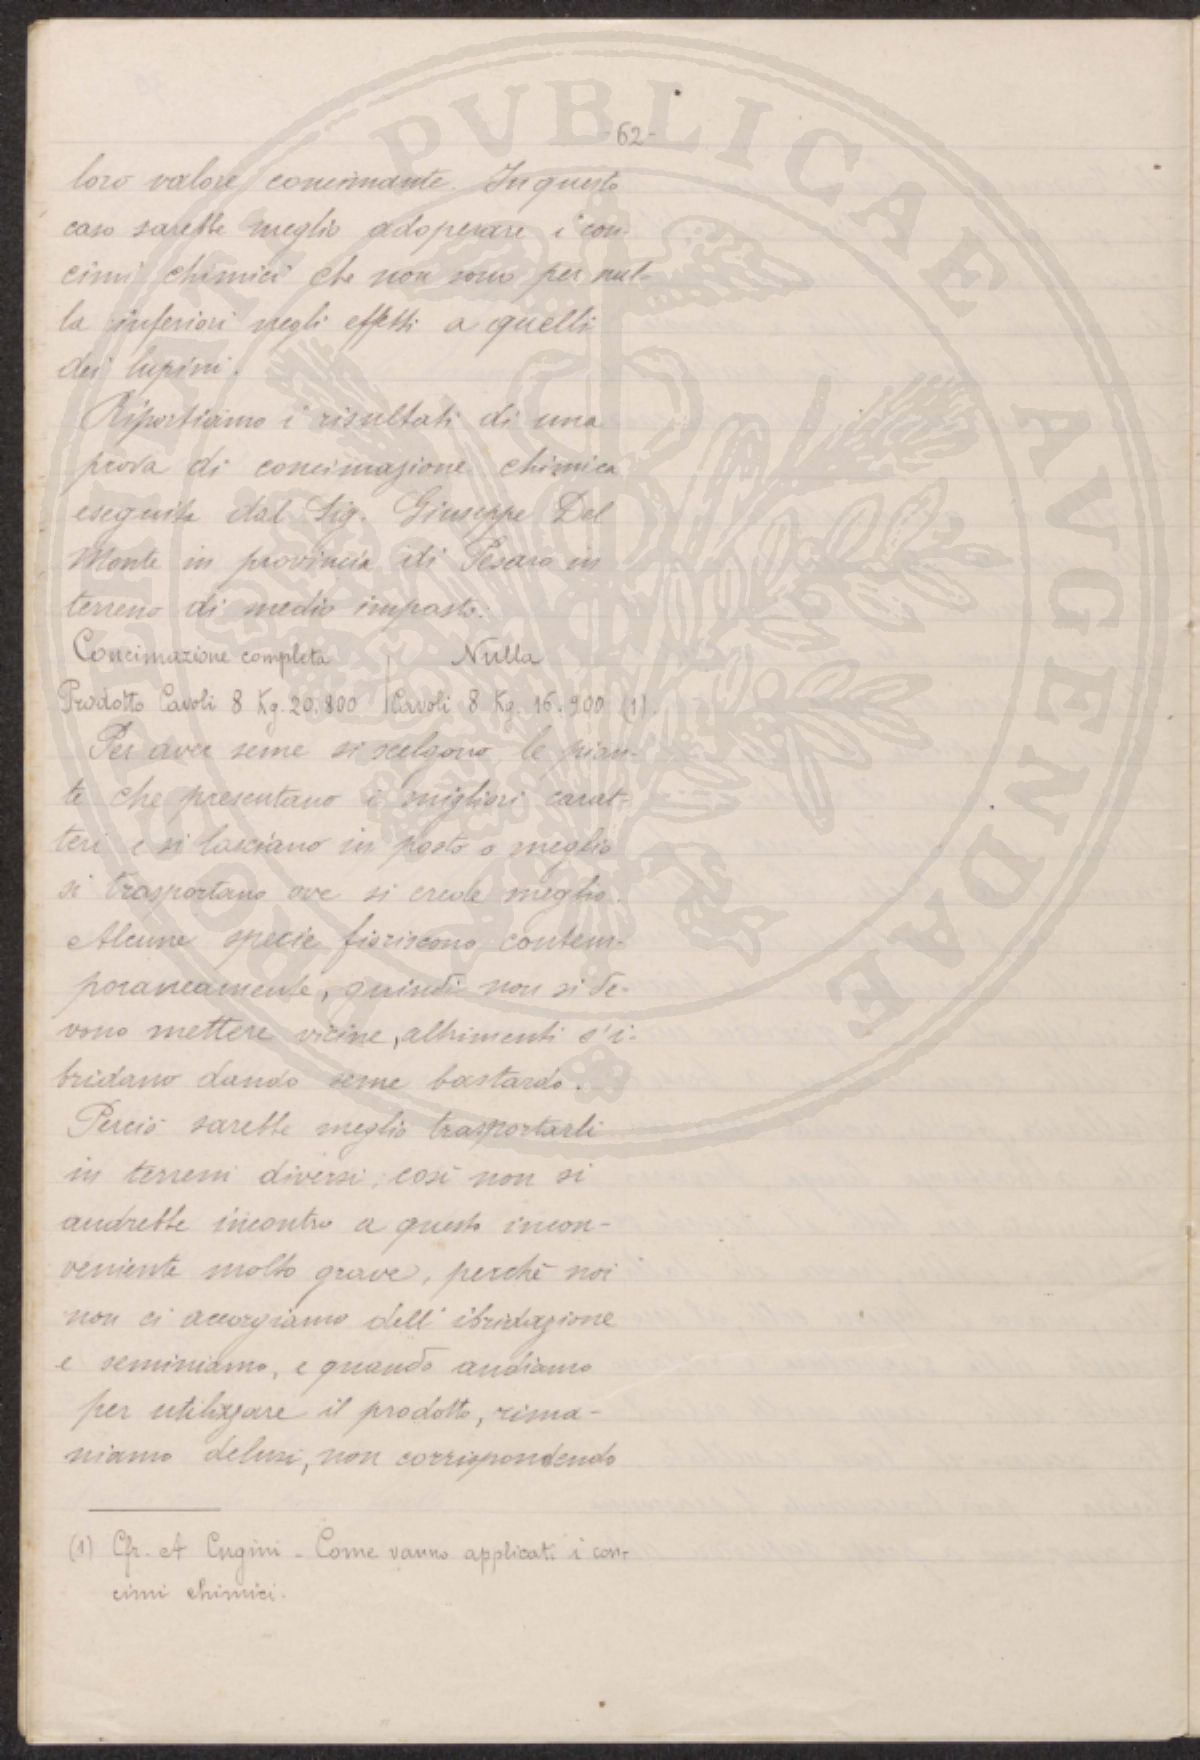 -62-
loro valore concimante. In questo
caso sarebbe meglio adoperare i con-
cimi chimici che non sono per nul-
la inferiori negli effetti a quelli
dei lupini.
Riportiamo i risultati di una
prova di concimazione chimica
eseguita dal Sig. Giuseppe Del
Monte in provincia di Pesaro in
terreno di medio impasto:
Concimazione completa | Nulla
Prodotto Cavoli 8 Kg. 20.800 | Cavoli 8 Kg. 16.900 (1).
Per aver seme si scelgono le pian-
te che presentano i migliori carat-
teri e si lasciano in posto o meglio
si trasportano ove si crede meglio.
Alcune specie fioriscono contem-
poraneamente, quindi non si de-
vono mettere vicine, altrimenti s'i-
bridano dando seme bastardo.
Perciò sarebbe meglio trasportarli
in terreni diversi, così non si
andrebbe incontro a questo incon-
veniente molto grave, perchè noi
non ci accorgiamo dell'ibridazione
e seminiamo, e quando andiamo
per utilizzare il prodotto, rima-
niamo delusi, non corrispondendo
(1) Cfr. A Cugini - Come vanno applicati i con-
cimi chimici.
PUBLICAE AVGENDAE